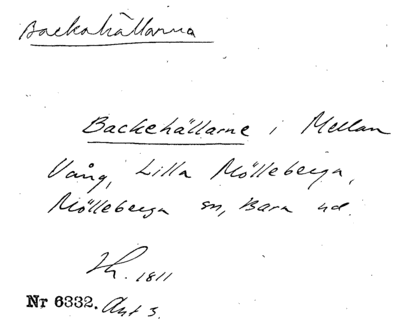 Backahällarna
Backehällarne i Mellan
Vång, Lilla Mölleberga,
Mölleberga sn, Bara hd.
Sk. 1811
Nr 6332. Akt 3.